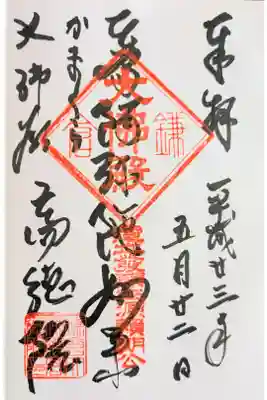 奉拝 平成廿三年
五月廿二日
阿弥陀如来
鎌倉
大佛殿
かまくら
大佛殿 高徳院